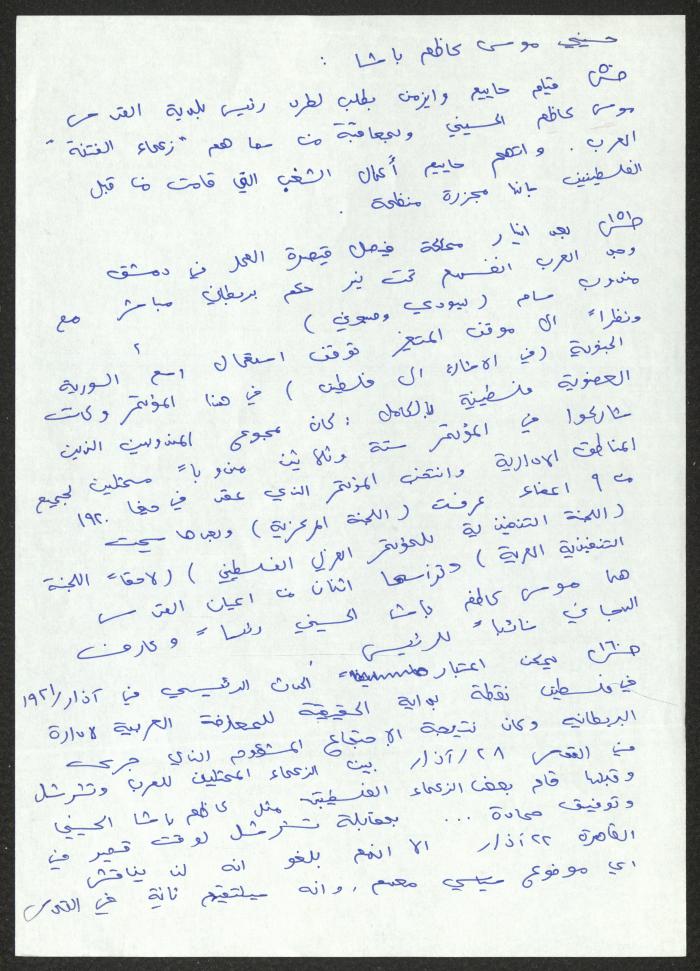 حسيني موسى كاظم باشا :
قيام حاييم وايزمن بطلب لطرد رئيس بلدية القدس
موسى كاظم الحسيني وبمعاقبة من سماهم "زعماء الفتنة"
العرب. واتهم حاييم أعمال الشغب التي قامت من قبل
الفلسطينيين بانها مجزرة منظمة .
بعد انهيار مملكة فيصل قصيرة العمر في دمشق
وجد العرب انفسهم تحت نير حكم بريطاني مباشر مع
مندوب سام (يهودي وصهيوني)
ونظراً الى موقف المتغير توقف استعمال اسم السورية
الجنوبية (في الاشارة الى فلسطين) في هذا المؤتمر وكانت
العضوية فلسطينية بالكامل : كان مجموع المندوبين الذين
شاركوا في المؤتمر ستة وثلاثين مندوباً ممثلين لجميع
المناطق الادارية وانتخب المؤتمر الذي عقد في حيفا ١٩٢٠
من ٩ اعضاء عرفت (اللجنة المركزية) وبعدها سميت
(اللجنة التنفيذية للمؤتمر العربي الفلسطيني) (لاحقاً اللجنة
التنفيذية العربية) وترأسها اثنان من اعيان القدس
هما موسى كاظم باشا الحسيني رئيساً وعارف
الدجاني نائباً للرئيس
يمكن اعتبار الحدث الرئيسي في آذار/١٩٢١
في فلسطين نقطة بداية الحقيقة للمعارضة العربية لادارة
البريطانية وكان نتيجة الاجتماع المشؤوم الذي جرى
في القدس ٢٨/آذار بين الزعماء الممثلين للعرب وتشرشل
وقبلها قام بعض الزعماء الفلسطينية مثل كاظم باشا الحسيني
وتوفيق حمادة ... بمقابلة تشرشل لوقت قصير في
القاهرة ٢٢ آذار الا انهم بلغو انه لن يناقش
اي موضوع سياسي معهم ، وانه سيلتقيهم ثانية في القدس